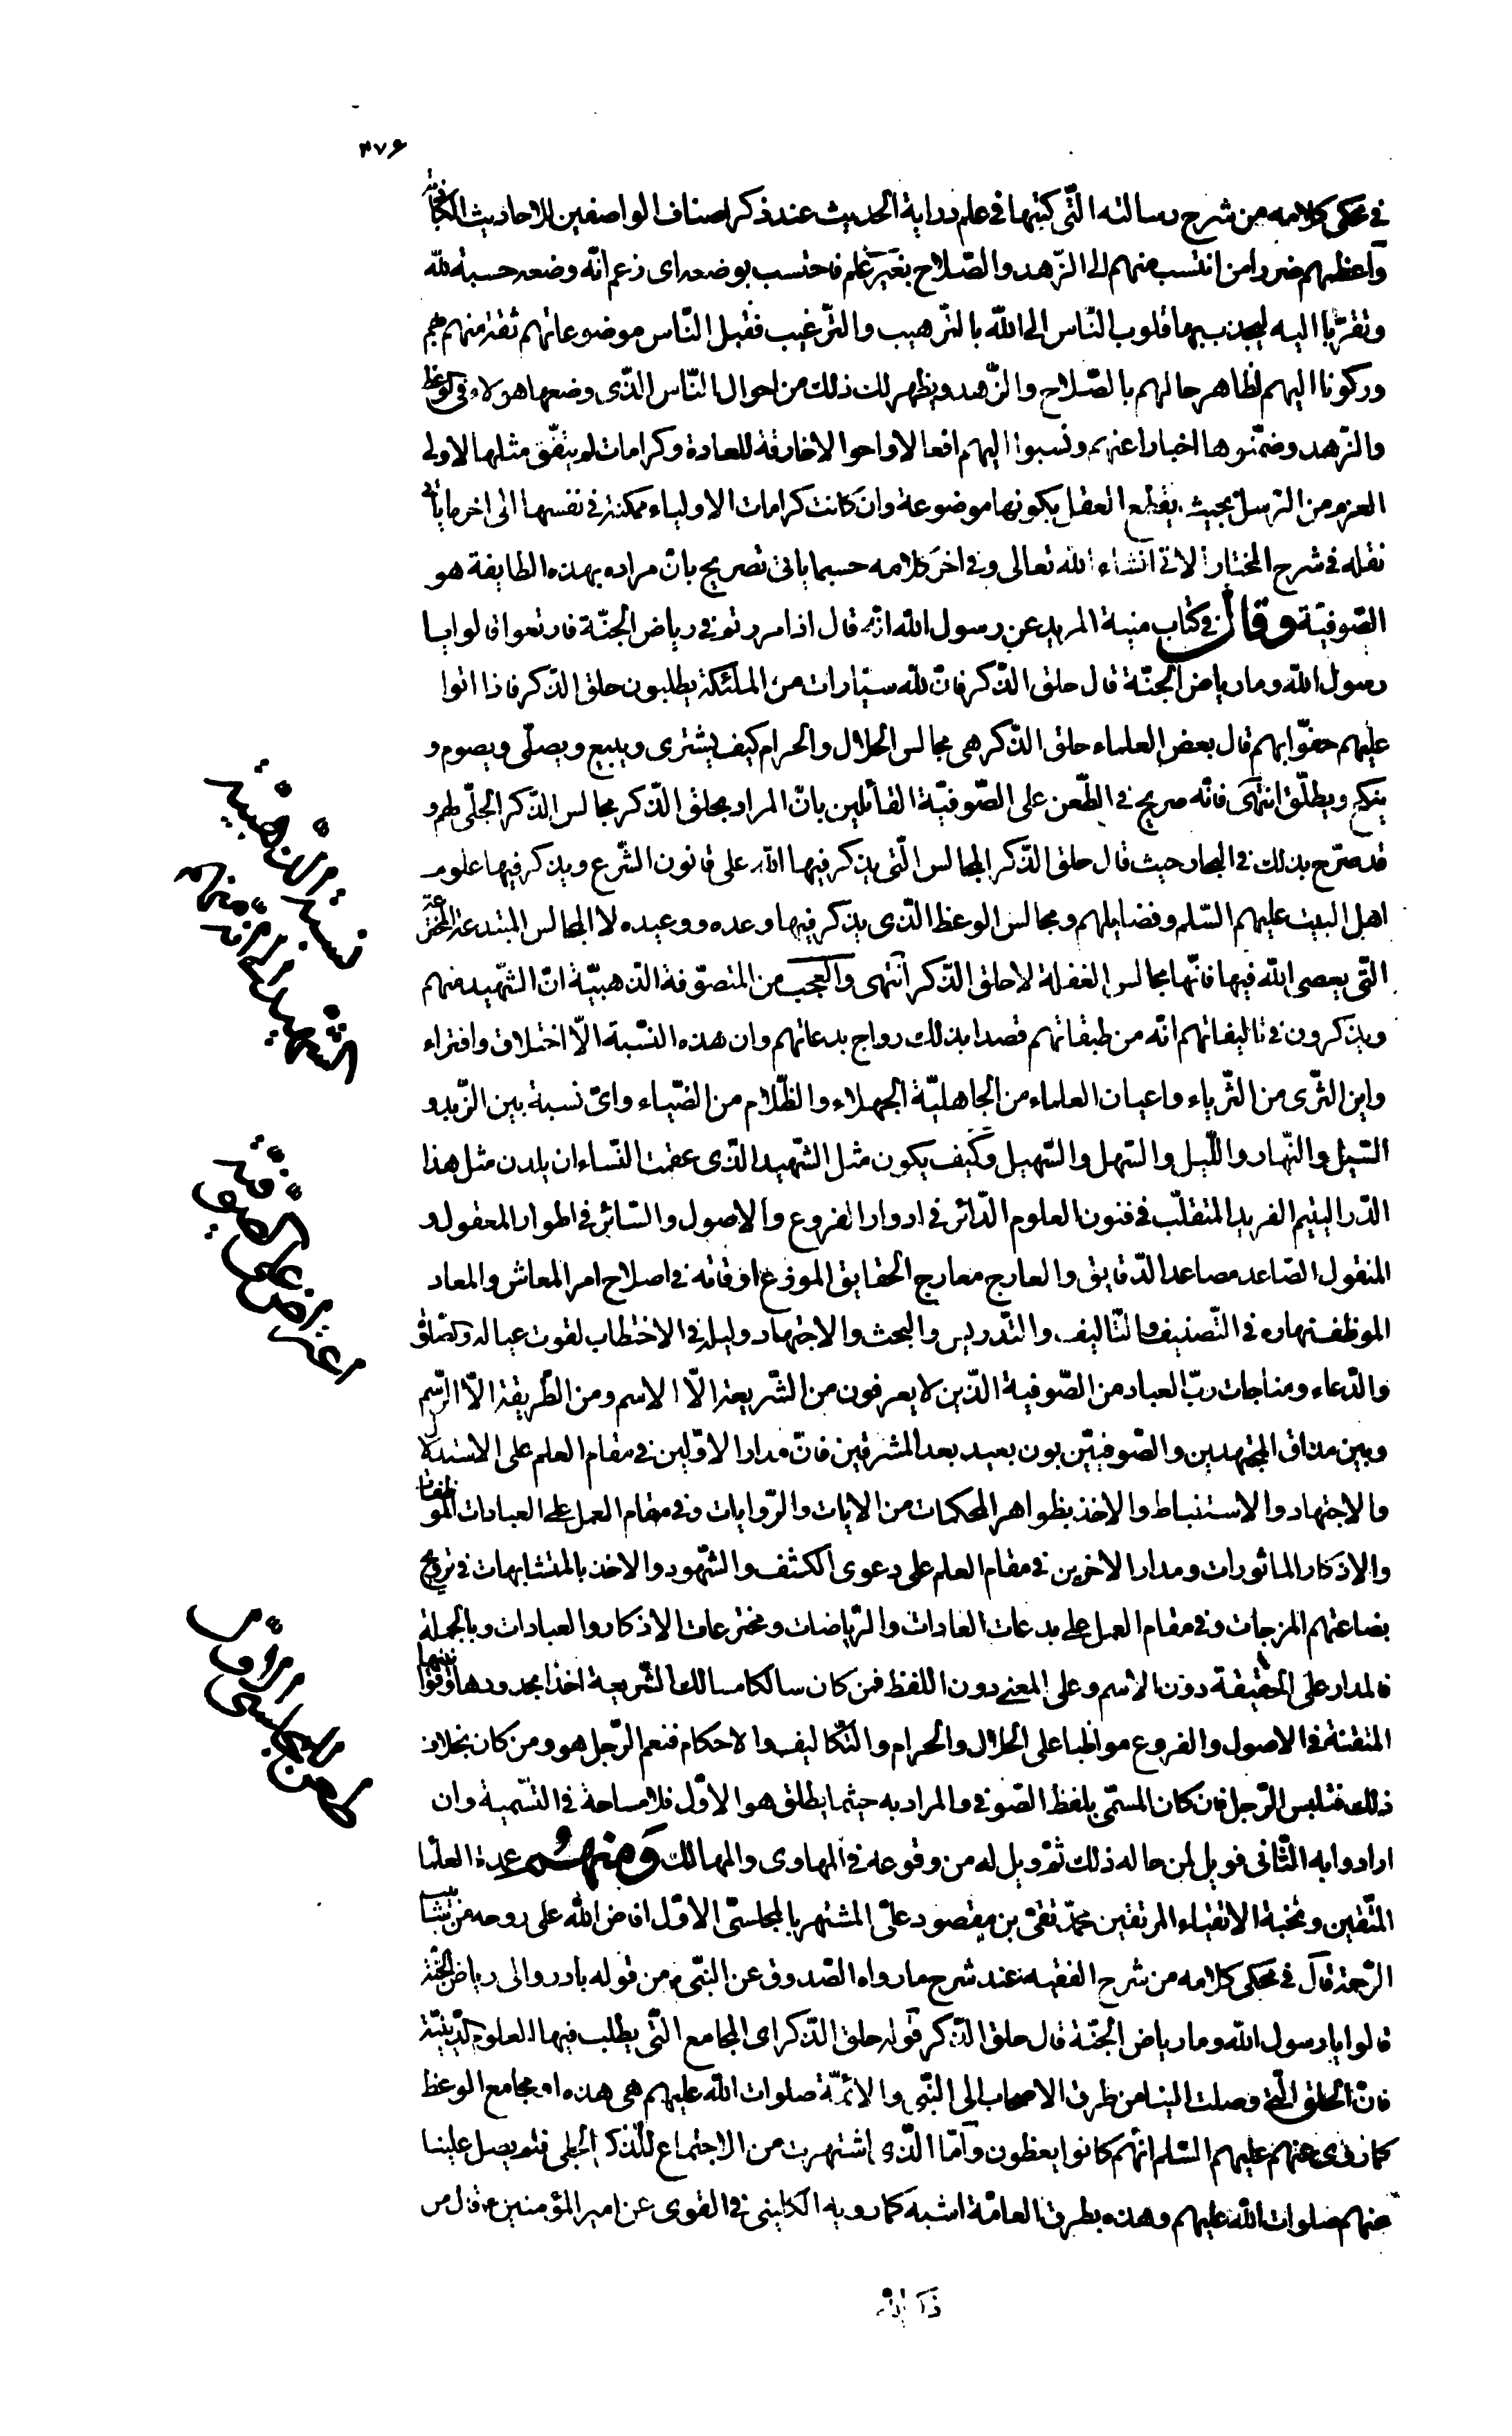 ٣٧۶
في محكى كلامه من شرح رسالته الّتى كتبها في علم دراية الحديث عند ذكر اصناف الواصفين للاحاديث الكاذبة
وآعظمهم ضررا من انتسب منهم الى الزّهد والصّلاح بغير علم فاحتسب بوضعه اى زعم انّه وضعه حسبة للّه
وتقرّبا اليه ليجذب بها قلوب النّاس الى اللّه بالترهيب والترّغيب فقبل النّاس موضوعاتهم ثقة منهم بهم
وركونا اليهم لظاهر حالهم بالصّلاح والزّهد ويظهر لك ذلك من احوال النّاس الّذى وضعها هولاء في الوعظ
والزهد وضمّنوها اخبارا عنهم ونسبوا اليهم افعالا واحوالا خارقة للعادة وكرامات لم يتفّق مثلها لاولى
العزم من الرّسل بحيث يقطع العقل بكونها موضوعة وان كانت كرامات الاولياء ممكنة في نفسها الى اخر ما ياتى
نقله في شرح المختار الاتى انشاء اللّه تعالى وفي اخر كلامه حسبما ياتى تصريح بانّ مراده بهذه الطايفة هو
الصّوفيّة وقال في كتاب منية المريد عن رسول اللّه انّه قال اذا مررتم في رياض الجنّة فارتعوا قالوا يا
رسول اللّه وما رياض الجنّة قال حلق الذّكر فانّ للّه سيّارات من الملئكة يطلبون حلق الذّكر فاذا اتوا
عليهم حفّوا بهم قال بعض العلماء حلق الذّكر هى مجالس الحلال والحرام كيف يشترى ويبيع ويصلّى ويصوم و
ينكح ويطلّق انتهى فانّه صريح في الطّعن على الصّوفيّة القائلين بانّ المراد بحلق الذّكر مجالس الذّكر الجلّى لهم و
قد صرّح بذلك في البحار حيث قال حلق الذّكر المجالس الّتى يذكر فيها اللّه على قانون الشّرع ويذكر فيها علوم
اهل البيت عليهم السّلم وفضايلهم ومجالس الوعظ الّذى يذكر فيها وعده ووعيده لا المجالس المبتدعة المخترعة
الّتى يعصى اللّه فيها فانّها مجالس الغفلة لا حلق الذّكر آنتهى والعجب من المتصوّفة الذّهبيّة انّ الشّهيد منهم
ويذكرون في تاليفاتهم انّه من طبقاتهم قصدا بذلك رواج بدعاتهم وان هذه النّسبة الّا اختلاق وافتراء
واين الثّرى من الثّرياء واعيان العلماء من الجاهليّة الجهلاء والظّلام من الضّياء واىّ نسبة بين الزّبد و
السّيل والنّهار واللّيل والسّهل والسّهيل وكيف يكون مثل الشّهيد الّذى عقمت النّساء ان يلدن مثل هذا
الدّر اليتيم الفريد المتقلّب في فنون العلوم الدّائر في ادوار الفروع والاصول والسّائر في اطوار المعقول و
المنقول الصّاعد مصاعد الدّقايق والعارج معارج الحقايق الموزّع اوقاته في اصلاح امر المعاش والمعاد
الموظف نهاره في التّصنيف والتّاليف والتّدريس والبحث والاجتهاد وليله في الاحتطاب لقوت عياله
والدّعاء ومناجات ربّ العباد من الصّوفية الّذين لا يعرفون من الشّريعة الّا الاسم ومن الطّريقة الّا الرّسم
وبين مذاق المجتهدين والصّوفيّين بون بعيد بعد المشرقين فانّ مدار الاوّلين في مقام العلم على الاستدلال
والاجتهاد والاستنباط والاخذ بظواهر المحكمات من الايات والرّوايات وفي مقام العمل على العبادات الموظفات
والاذكار الماثورات ومدار الاخرين في مقام العلم على دعوى الكشف والشّهود والاخذ بالمتشابهات في ترويج
بضاعتهم المزجات وفي مقام العمل على مبدعات العادات والرّياضات ومخترعات الاذكار والعبادات وبالجملة
فالمدار على الحقيقة دون الاسم وعلى المعنى دون اللفظ فمن كان سالكا مسالك الشّريعة اخذا بحدودها وقوانينها
المتقنة في الاصول والفروع مواظبا على الحلال والحرام والتّكاليف والاحكام فنعم الرّجل هو ومن كان بخلاف
ذلك فبئس الرّجل فان كان المسمّى بلفظ الصّوفي والمراد به حيثما يطلق هو الاوّل فلا مساحة في التّسمية وان
ارادوا به الثّانى فويل لمن حاله ذلك ثمّ ويل له من وقوعه في المهاوى والمهالك وَمنهُم عمدة العلماء
المتّقين ونخبة الاتقياء المرتقين محمّد تقى بن مقصود علىّ المشتهر بالمجلسىّ الاوّل افاض اللّه على روحه من شئابيب
الرّحمة قال في محكى كلامه من شرح الفقيه عند شرح ما رواه الصّدوق عن النبّى ص من قوله بادروا الى رياض الجنّة
قالوا يا رسول اللّه وما رياض الجنّة قال حلق الذّكر قوله حلق الذّكر اى المجامع الّتى يطلب فيها العلوم الدّينيّة
فانّ الحلق الّتى وصلت الينا من طرق الاصحاب الى النّبّى والائمّة صلوات اللّه عليهم هى هذه او مجامع الوعظ
كما روى عنهم عليهم السّلم انّهم كانوا يعظون وآمّا الّذى اشتهرت من الاجتماع للذّكر الجلى فلم يصل علينا
عنهم صلوات اللّه عليهم وهذه بطرق العامّة اشبه كما رويه الكلينى في القوى عن امير المؤمنين ع قال من
ذكر اللّه
نسبة الذّهبيّة
الشهيد الى انّه منهم
اعتراض على الصّوفيّة
طعن المجلسى الاوّل